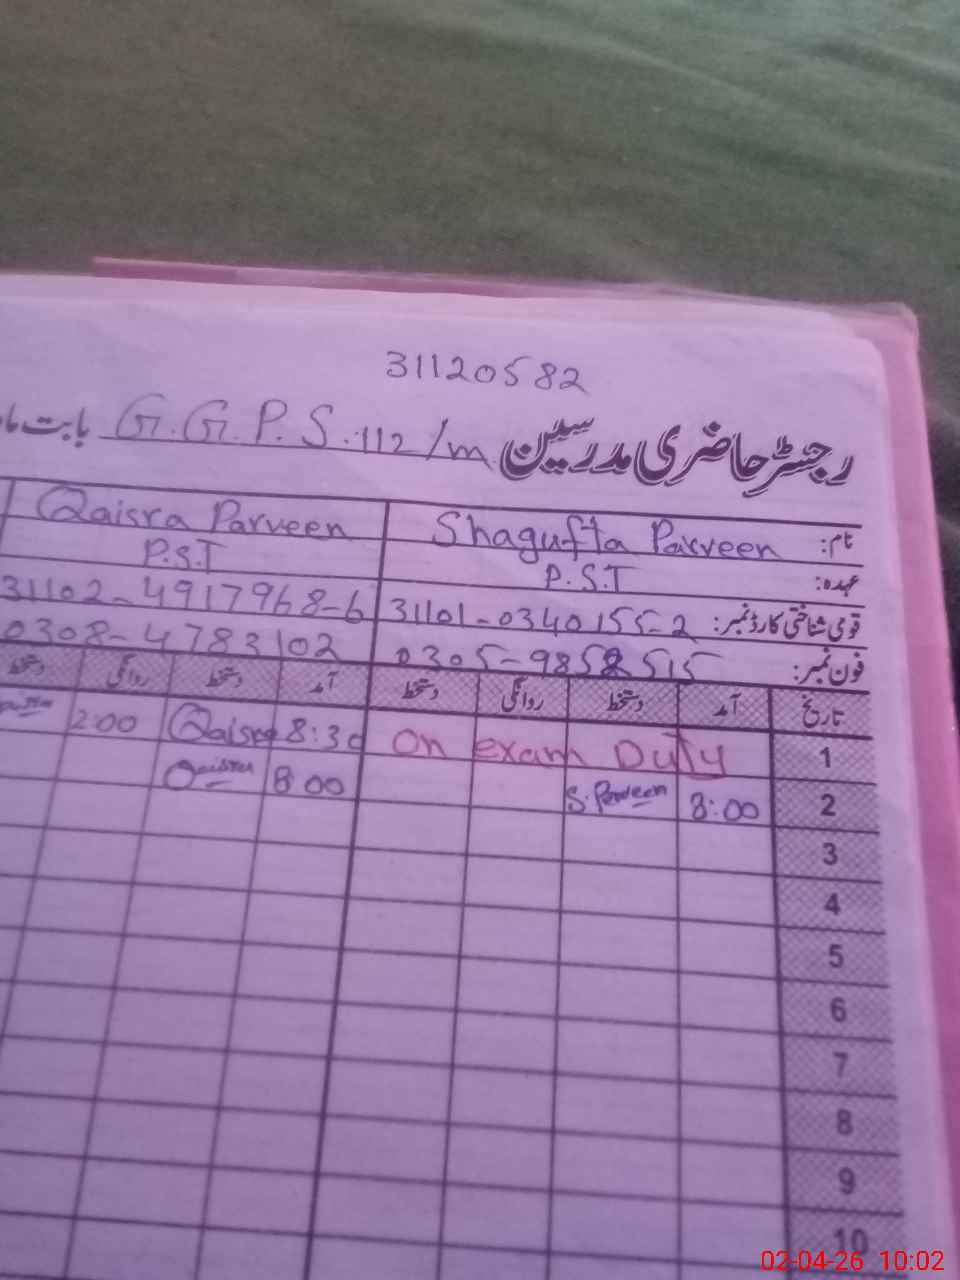 31120582
رجسٹر حاضری مدرسین G.G.P.S. 112/m بابت ماہ
نام: Shagufta Parveen Qaisra Parveen
عہدہ: P.S.T P.S.T
قومی شناختی کارڈ نمبر: 31101-0340155-2 31102-4917968-6
فون نمبر: 0305-9852515 0308-4783102
تاریخ آمد دستخط روانگی دستخط آمد دستخط روانگی دستخط
1 On exam Duty 8:30 Qaisra 2:00
2 8:00 S. Parveen 8:00 Qaisra
3
4
5
6
7
8
9
10
02-04-26 10:02